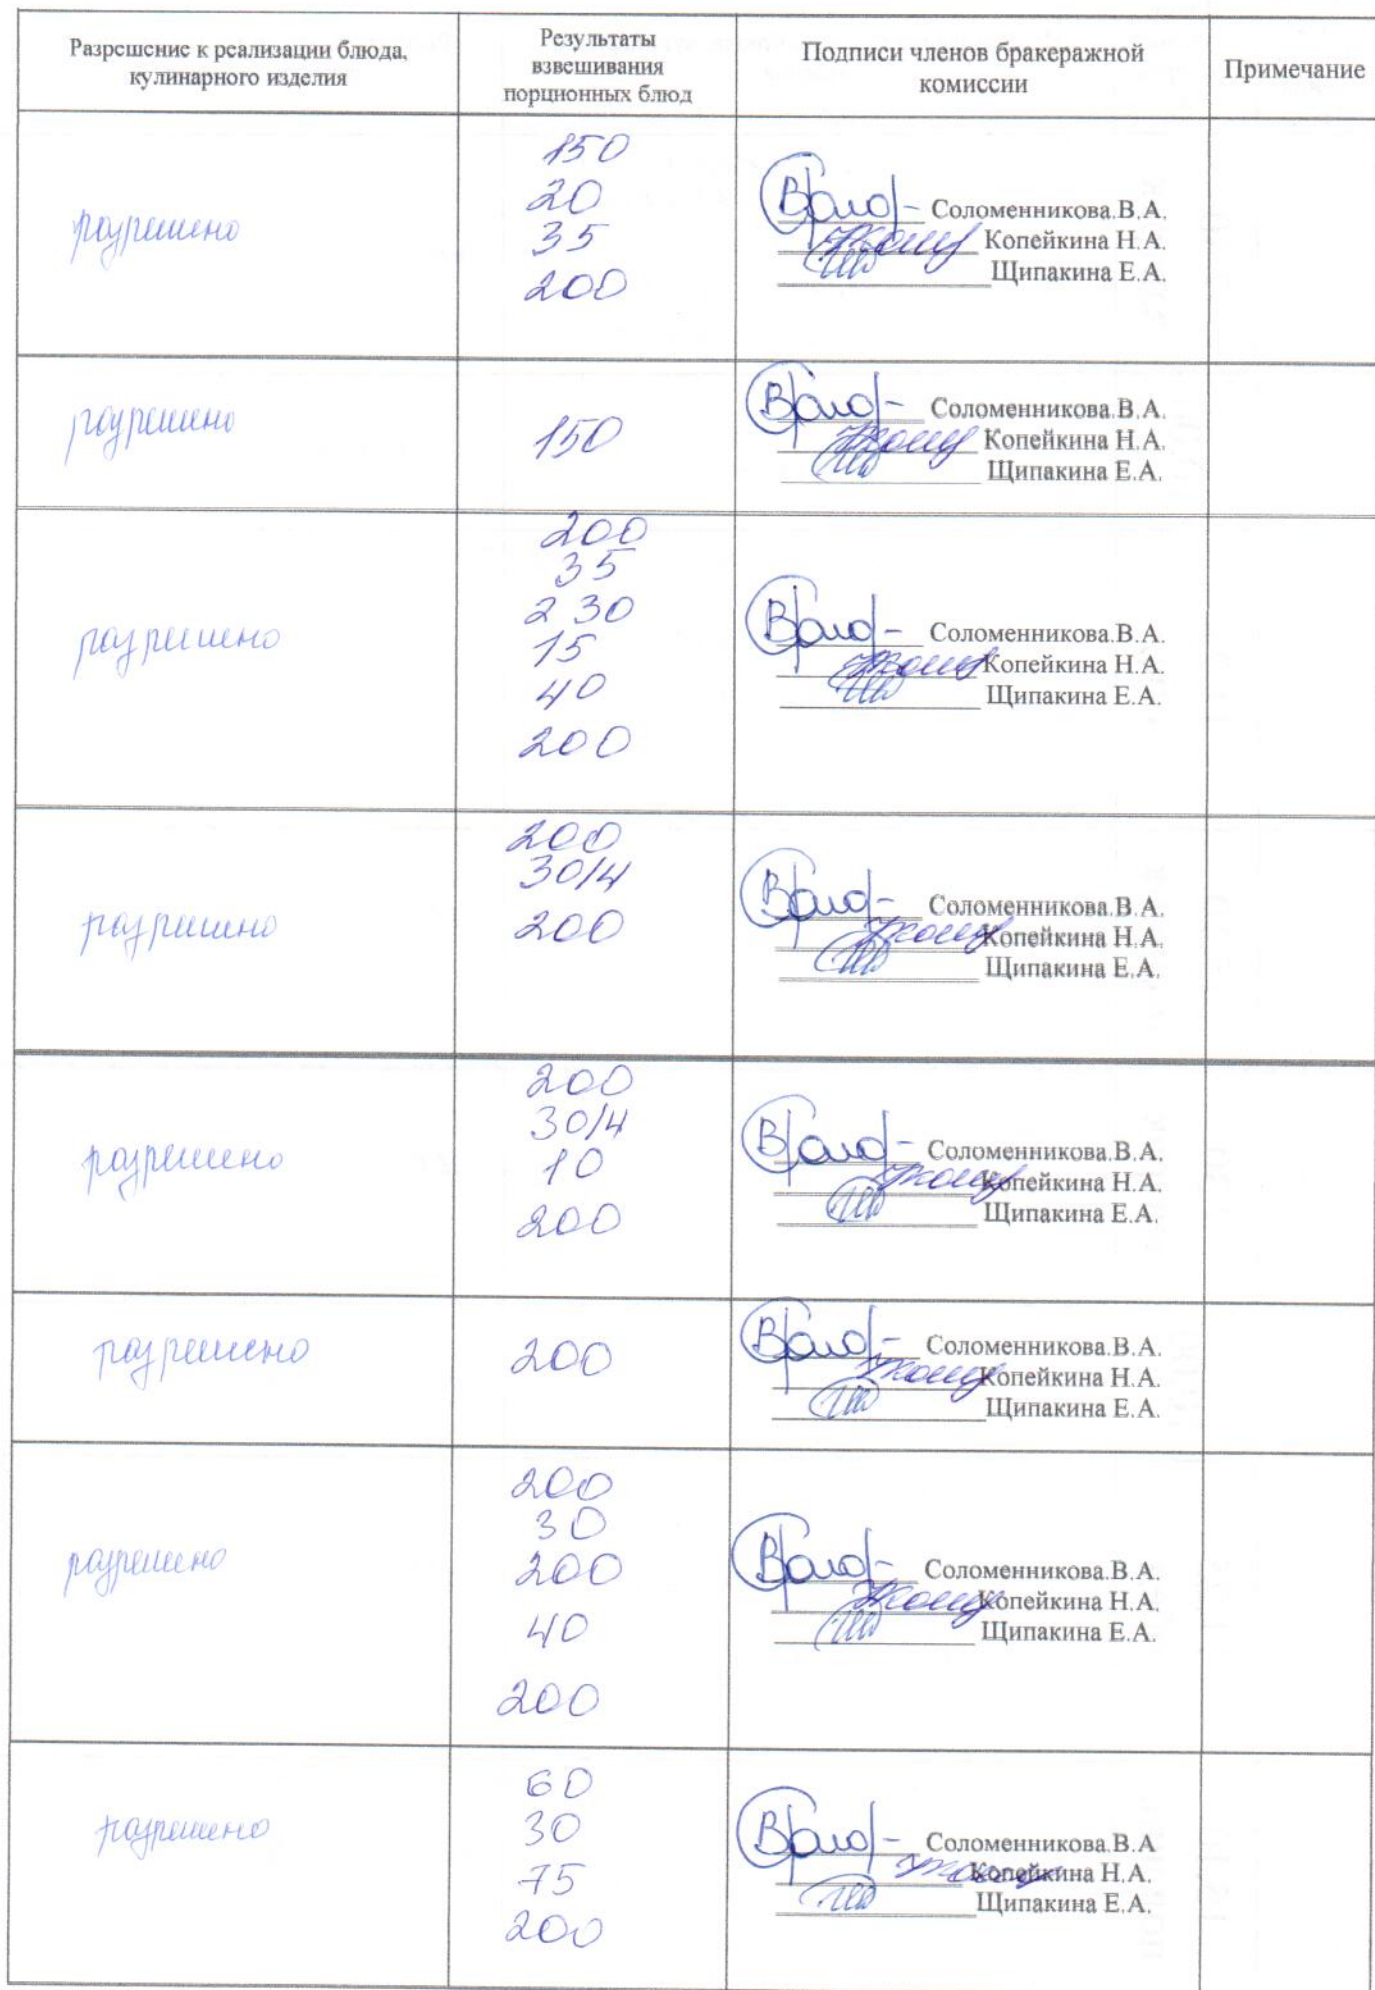 Разрешение к реализации блюда,
кулинарного изделия
Результаты
взвешивания
порционных блюд
Подписи членов бракеражной
комиссии
Примечание
разрешено
150
20
35
200
Соломенникова.В.А.
Копейкина Н.А.
Щипакина Е.А.
разрешено
150
Соломенникова.В.А.
Копейкина Н.А.
Щипакина Е.А.
разрешено
200
35
230
15
40
200
Соломенникова.В.А.
Копейкина Н.А.
Щипакина Е.А.
разрешено
200
30/4
200
Соломенникова.В.А.
Копейкина Н.А.
Щипакина Е.А.
разрешено
200
30/4
10
200
Соломенникова.В.А.
Копейкина Н.А.
Щипакина Е.А.
разрешено
200
Соломенникова.В.А.
Копейкина Н.А.
Щипакина Е.А.
разрешено
200
30
200
40
200
Соломенникова.В.А.
Копейкина Н.А.
Щипакина Е.А.
разрешено
60
30
75
200
Соломенникова.В.А
Копейкина Н.А.
Щипакина Е.А.